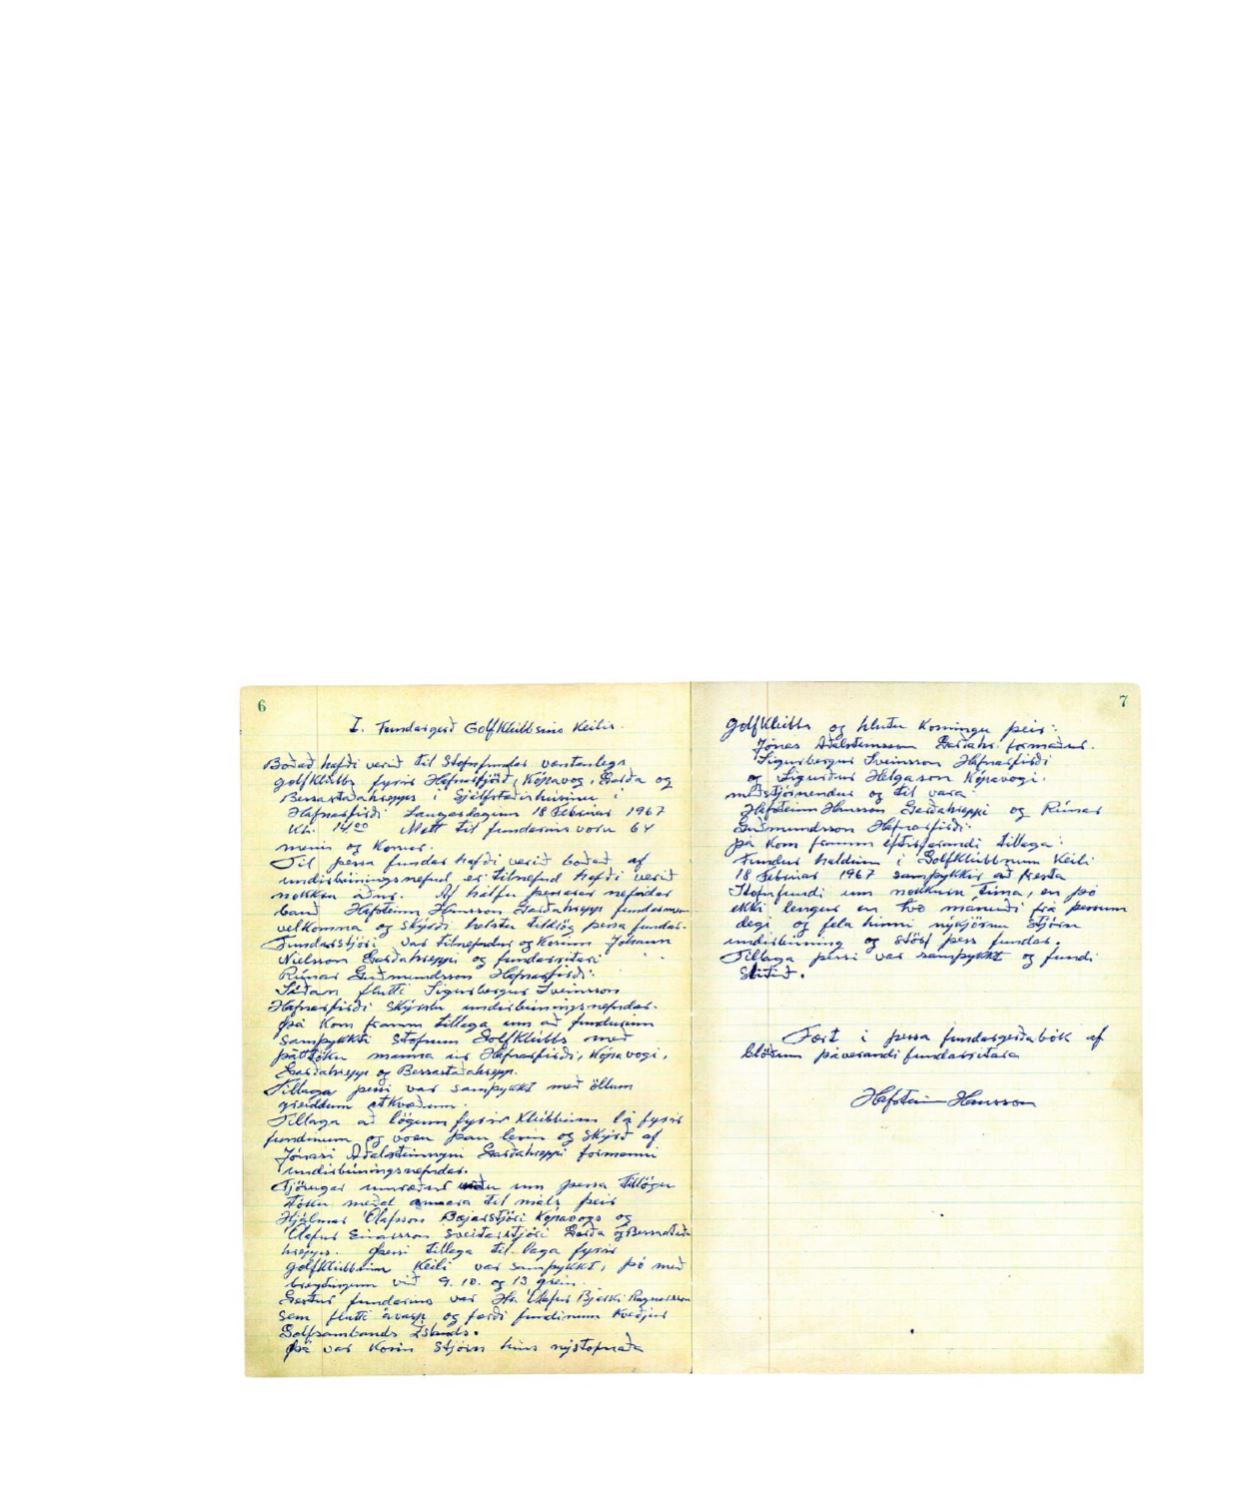 6
I. Fundargerð Golfklúbbsins Keilir.
Boðað hafði verið til Stofnfundar væntanlegs
golfklúbbs fyrir Hafnarfjörð, Kópavog, Garða og
Bessastaðahrepps í Sjálfstæðishúsinu í
Hafnarfirði Laugardaginn 18 Febrúar 1967
kl. 14.00 Mætt til fundarins voru 64
menn og konur.
Til þessa fundar hafði verið boðað af
undirbúningsnefnd er tilnefnd hafði verið
nokkru áður. Af hálfu þessarar nefndar
bauð Hafsteinn Hansson Garðahrepp fundarmenn
velkomna og skýrði helstu tildrög þessa fundar.
Fundarstjóri var tilnefndur og kosinn Jóhann
Níelsson Garðahreppi og fundarritari
Rúnar Guðmundsson Hafnarfirði.
Síðan flutti Sigurbergur Sveinsson
Hafnarfirði skýrslu undirbúningsnefndar.
Þá kom framm tillaga um að fundurinn
samþykkti stofnun Golfklúbbs með
þátttöku manna úr Hafnarfirði, Kópavogi,
Garðahrepp og Bessastaðahrepp.
Tillaga þessi var samþykkt með öllum
greiddum atkvæðum.
Tillaga að lögum fyrir klúbbinn lá fyrir
fundinum og voru þau lesin og skýrð af
Jónasi Aðalsteinssyni Garðahreppi formanni
undirbúningsnefndar.
Fjörugar umræður um þessa tillögu
tóku meðal annara til máls þeir
Hjálmar Ólafsson Bæjarstjóri Kópavogs og
Ólafur Einarsson sveitarstjóri Garða og Bessastaða
hrepps. Þessi tillaga til laga fyrir
golfklúbbinn Keili var samþykkt, þó með
breytingum við 9. 10. og 13 grein.
Gestur fundarins var Hr. Ólafur Bjarki Ragnarsson
sem flutti ávarp og færði fundinum kveðjur
Golfsambands Íslands.
Þá var kosin stjórn hins nýstofnaða
7
golfklúbbs og hlutu kosningu þeir:
Jónas Aðalsteinsson Garðahr. formaður.
Sigurbergur Sveinsson Hafnarfirði
og Sigurður Helgason Kópavogi.
meðstjórnendur og til vara
Hafsteinn Hansson Garðahreppi og Rúnar
Guðmundsson Hafnarfirði.
Þá kom framm eftirfarandi tillaga:
Fundur haldinn í Golfklúbbnum Keili
18 Febrúar 1967 samþykkir að fresta
Stofnfundi um nokkurn tíma, en þó
ekki lengur en tvo mánuði frá þessum
degi og fela hinni nýkjörnu stjórn
undirbúning og störf þess fundar.
Tillaga þessi var samþykkt og fundi
slitið.
Fært í þessa fundargerðabók af
blöðum þáverandi fundarritara
Hafsteinn Hansson